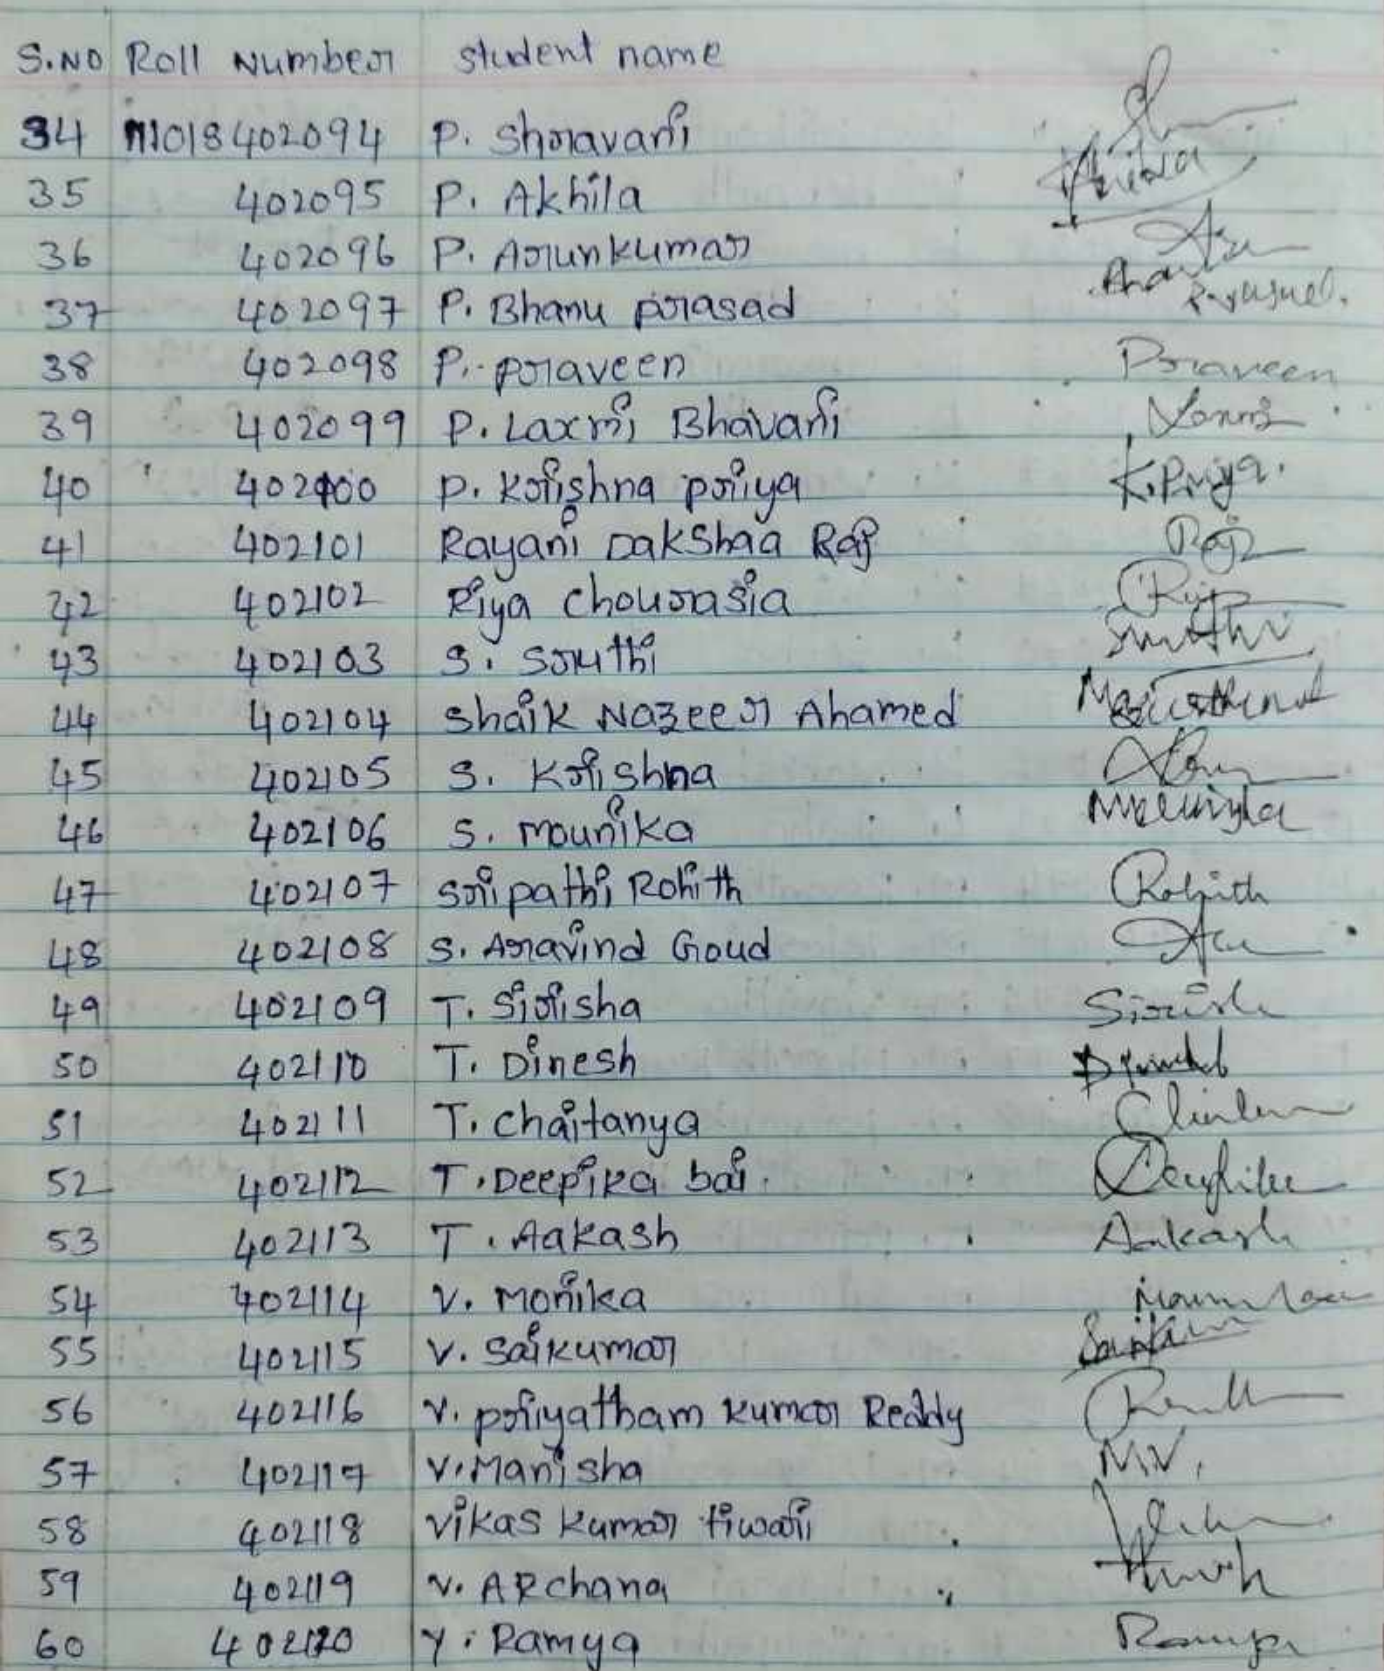 S.NO Roll Number student name
34 402094 P. Shravani
35 402095 P. Akhila
36 402096 P. Arunkumar
37 402097 P. Bhanu prasad
38 402098 P. praveen Praveen
39 402099 P. Laxmi Bhavani Laxmi
40 402100 P. Krishna priya K.Priya.
41 402101 Rayani Dakshaa Raj Raj
42 402102 Riya chourasia Riya
43 402103 S. Sruthi Sruthi
44 402104 Shaik Nazeer Ahamed
45 402105 S. Krishna
46 402106 S. mounika
47 402107 Sripathi Rohith Rohith
48 402108 S. Aravind Goud
49 402109 T. Sirisha
50 402110 T. Dinesh
51 402111 T. chaitanya
52 402112 T. Deepika bai.
53 402113 T. Aakash Aakash
54 402114 V. Monika
55 402115 V. Saikumar
56 402116 V. priyatham kumar Reddy
57 402117 V. Manisha MV.
58 402118 Vikas kumar tiwari
59 402119 V. ARchana
60 402120 Y. Ramya Ramya